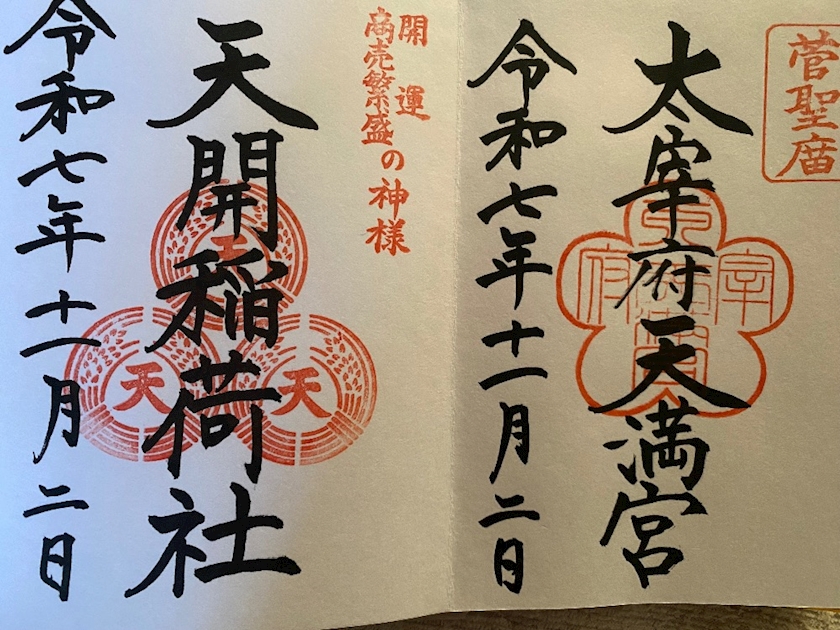 菅聖庿
太宰府天満宮
令和七年十一月二日
開運
商売繁盛の神様
天開稲荷社
天
天
令和七年十一月二日